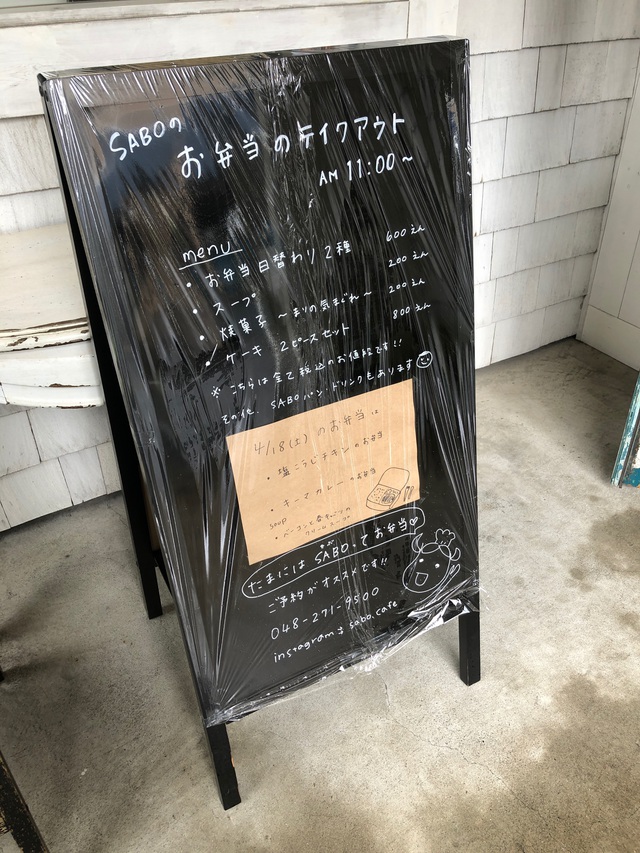 SABOの
お弁当のテイクアウト
AM 11:00~
menu
・お弁当日替わり2種 600えん
・スープ 200えん
・焼菓子 ~まりの気まぐれ~ 200えん
・ケーキ 2ピースセット 800えん
※こちらは全て税込のお値段です!!
その他、SABOパン・ドリンクもあります
4/18(土)のお弁当は
・塩こうじチキンのお弁当
・キーマカレーのお弁当
soup
・ベーコンと春キャベツの
クリームスープ
たまにはSABOでお弁当♡
ご予約がオススメです!!
048-271-9500
instagram: sabo.cafe